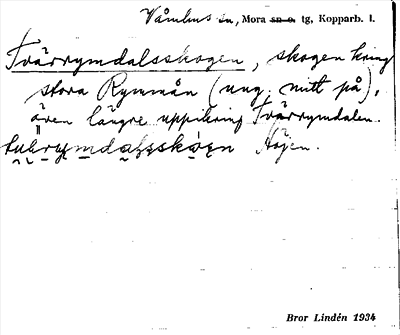 Våmhus sn, Mora sn o. tg, Kopparb. l.
Tvärrymdalsskogen, skogen kring
stora Rymmån (ung. mitt på),
även längre uppikring Tvärrymdalen.
Höjen.
Bror Lindén 1934